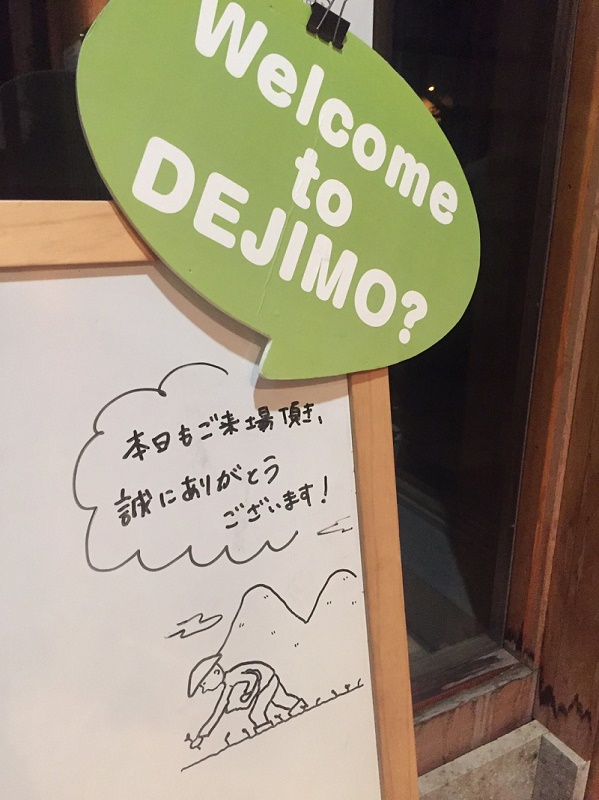 Welcome
to
DEJIMO?
本日もご来場頂き、
誠にありがとう
ございます!